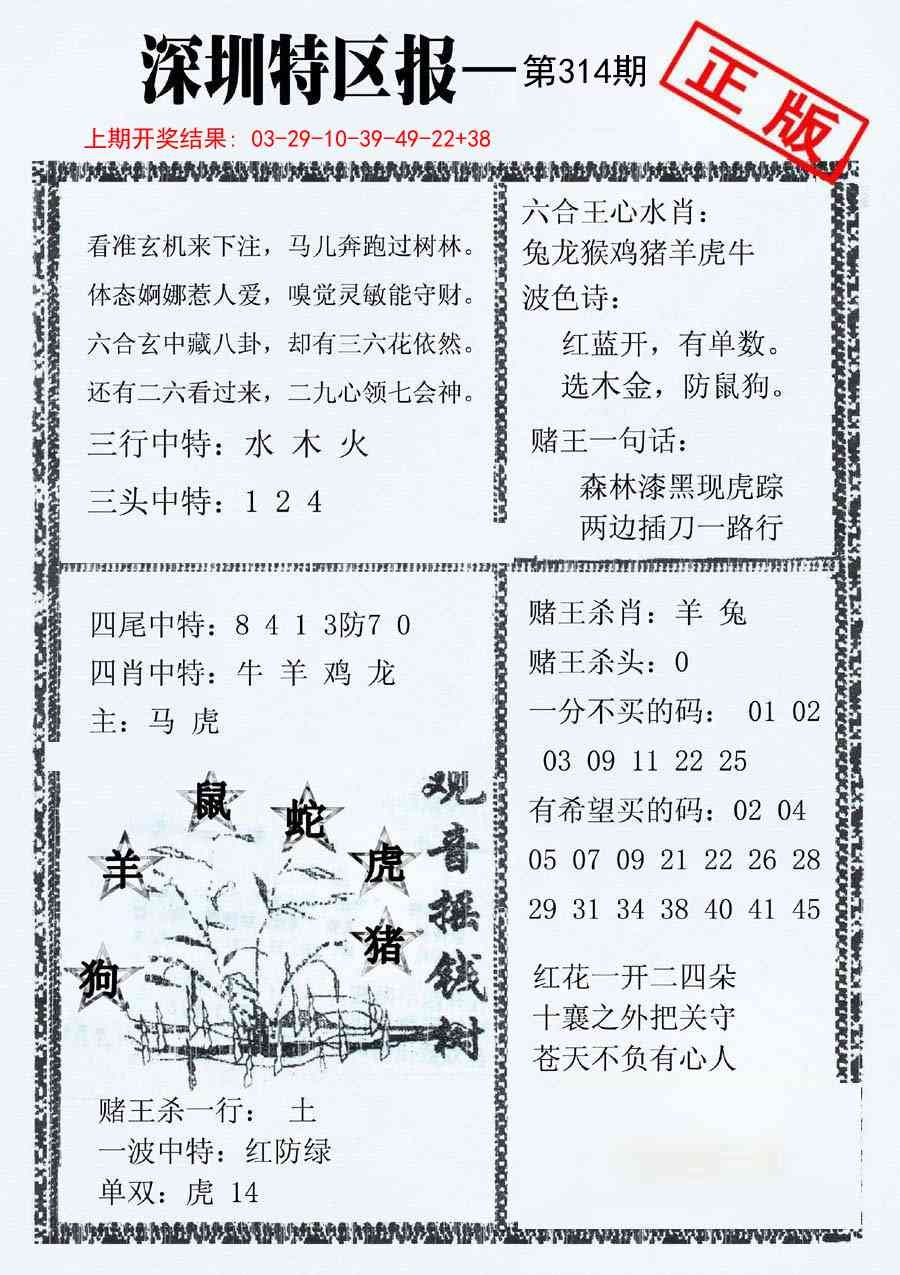 深圳特区报—第314期
正版
上期开奖结果: 03-29-10-39-49-22+38
看准玄机来下注，马儿奔跑过树林。
体态婀娜惹人爱，嗅觉灵敏能守财。
六合玄中藏八卦，却有三六花依然。
还有二六看过来，二九心领七会神。
三行中特：水 木 火
三头中特：1 2 4
六合王心水肖：
兔龙猴鸡猪羊虎牛
波色诗：
红蓝开，有单数。
选木金，防鼠狗。
赌王一句话：
森林漆黑现虎踪
两边插刀一路行
四尾中特：8 4 1 3防7 0
四肖中特：牛 羊 鸡 龙
主：马 虎
鼠
蛇
羊
虎
猪
狗
观音摇钱树
赌王杀一行： 土
一波中特：红防绿
单双：虎 14
赌王杀肖：羊 兔
赌王杀头：0
一分不买的码： 01 02
03 09 11 22 25
有希望买的码：02 04
05 07 09 21 22 26 28
29 31 34 38 40 41 45
红花一开二四朵
十襄之外把关守
苍天不负有心人